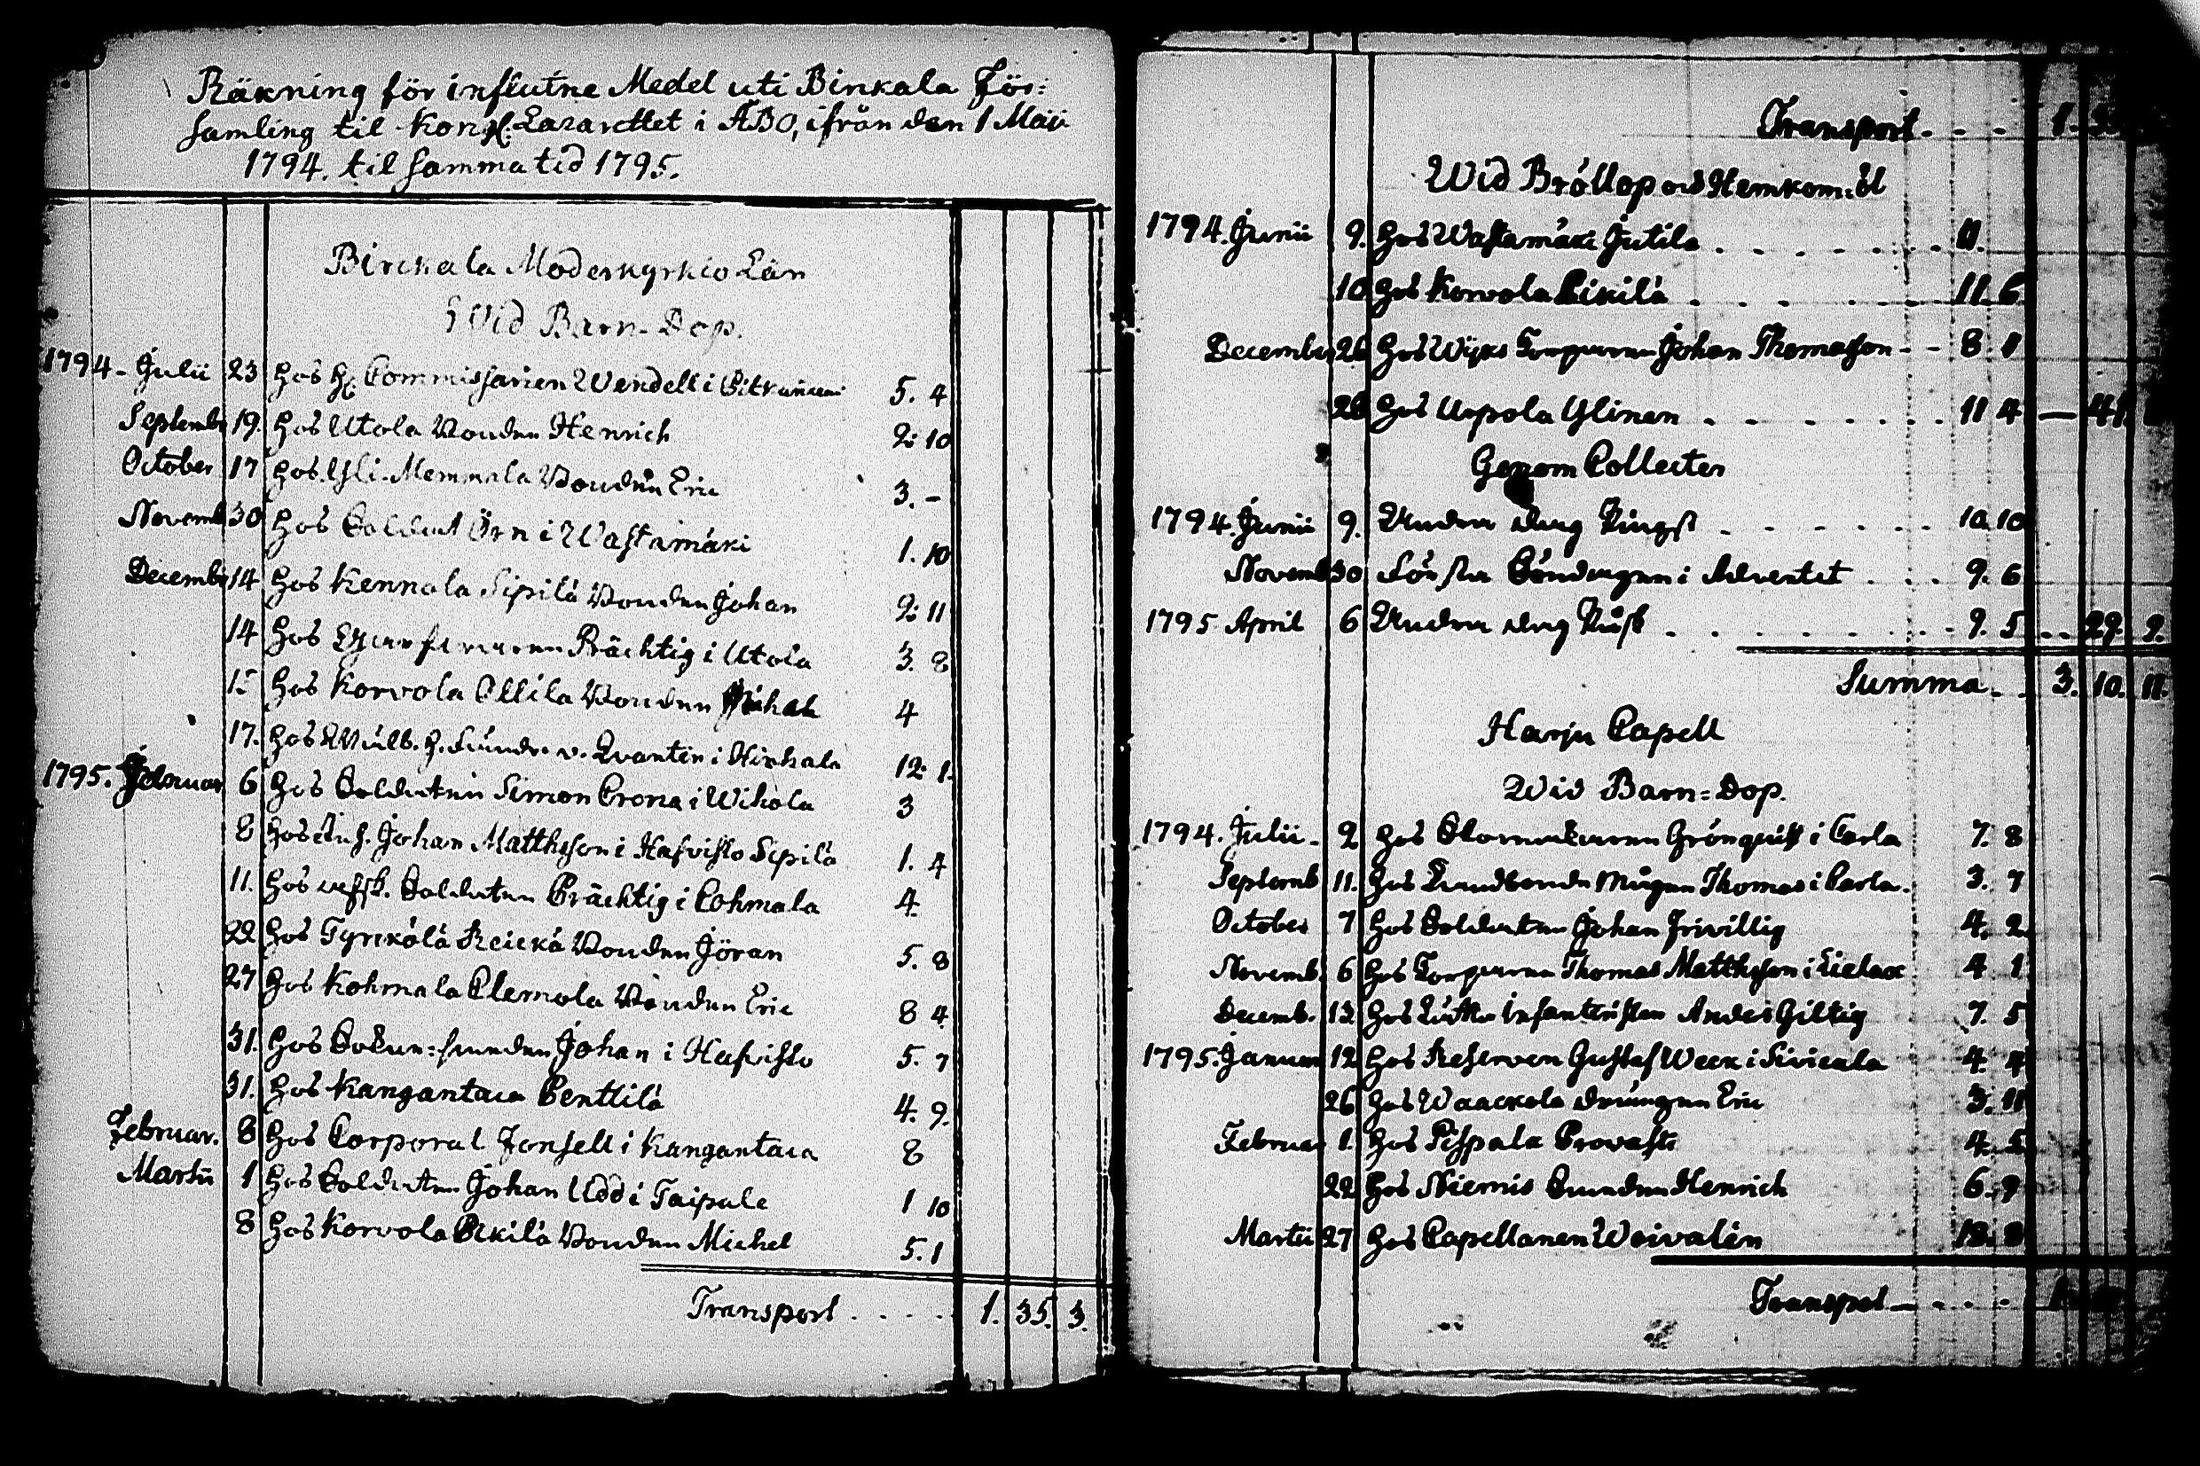 Räkning för influtne Medel uti Birkala För=
samling til Kongl. Lazarettet i ÅBO, ifrån den 1 Maii
1794. til samma tid 1795.
Birckala Moderkyrkio Län
Wid Barn-Dop.
1794 - Julii 23 Hos H. Commissarien Wendell i Pitkäniemi 5. 4
Septemb 19. Hos Utola Bonden Henrich 2: 10
October 17 Hos Yli-Memmala Bonden Eric 3. -
Novemb 30 Hos Soldat Örn i Wastamäki 1. 10
Decemb 14 Hos Kennola Sipilä Bonden Johan 2: 11
14 Hos Prächtig i Utola 3. 8
15 Hos Korvola Ollila Bonden Michel 4
17. Hos v. Qvanten i Hirhala 12: 1.
1795. Januar 6 Hos Soldaten Simon Crona i Wihola 3
8 Hos Inh. Johan Matthsson i Hafvisto Sipilä 1. 4
11. Hos afsk. Soldaten Prächtig i Lohmala 4.
22 Hos Tyrckölä Reickä Bonden Jöran 5. 8
27 Hos Kohmala Clemola Bonden Eric 8 4.
31. Hos Johan i Hafvisto 5. 7
31. Hos Kangantaca Penttilä 4. 9.
Februar. 8 Hos Corporal Jonsell i Kangantaca 8
Martii 1 Hos Soldaten Johan Udd i Taipale 1 10
8 Hos Korvola Pikilä Bonden Michel 5. 1
Transport . . . . 1. 35. 3.
Transport - - - - 1.
Wid Bröllop och Hemkom:öl
1794. Junii 9. Hos Wastamäki Jutila . . . . . . . 11.
10 Hos Korvola Pikilä . . . . . . . 11. 6
December 26 Hos Wijks Torparen Johan Thomasson - - 8 1
26 Hos Uspola Ylinen . . . . . . . 11 4 — 41.
Genom Collecter
1794. Junii 9. Andra dag Pingst . . . . . . 10. 10
Novemb 30 Första Söndagen i Adventet . . . 9. 6
1795 April 6 Andra dag Påsk . . . . . . . . 9. 5 . . 29. 9.
Summa . . 3. 10. 11.
Harju Capell
Wid Barn=Dop.
1794. Julii - 2 Hos Grönquist i Carla 7. 8
Septemb 11. Hos Landbonde Mågen Thomas i Parla. 3. 7
October 7 Hos Soldaten Johan Frivillig 4. 2.
Novemb. 6 Hos Torparen Thomas Matthsson i Lielax 4 1
Decemb. 12 Hos Infanteristen Anders Giltig 7. 5
1795. Januar 12 Hos Reserven Gustaf Weck i Sivicala 4. 4
26 Hos Waackola drängen Eric 3. 11
Februar 1. Hos Pispala Provasti 4. 5
22 Hos Niemis Bonden Henrich 6. 9
Martii 27 Hos Capellanen Weivalén 12. 8
Transpot - . . . .